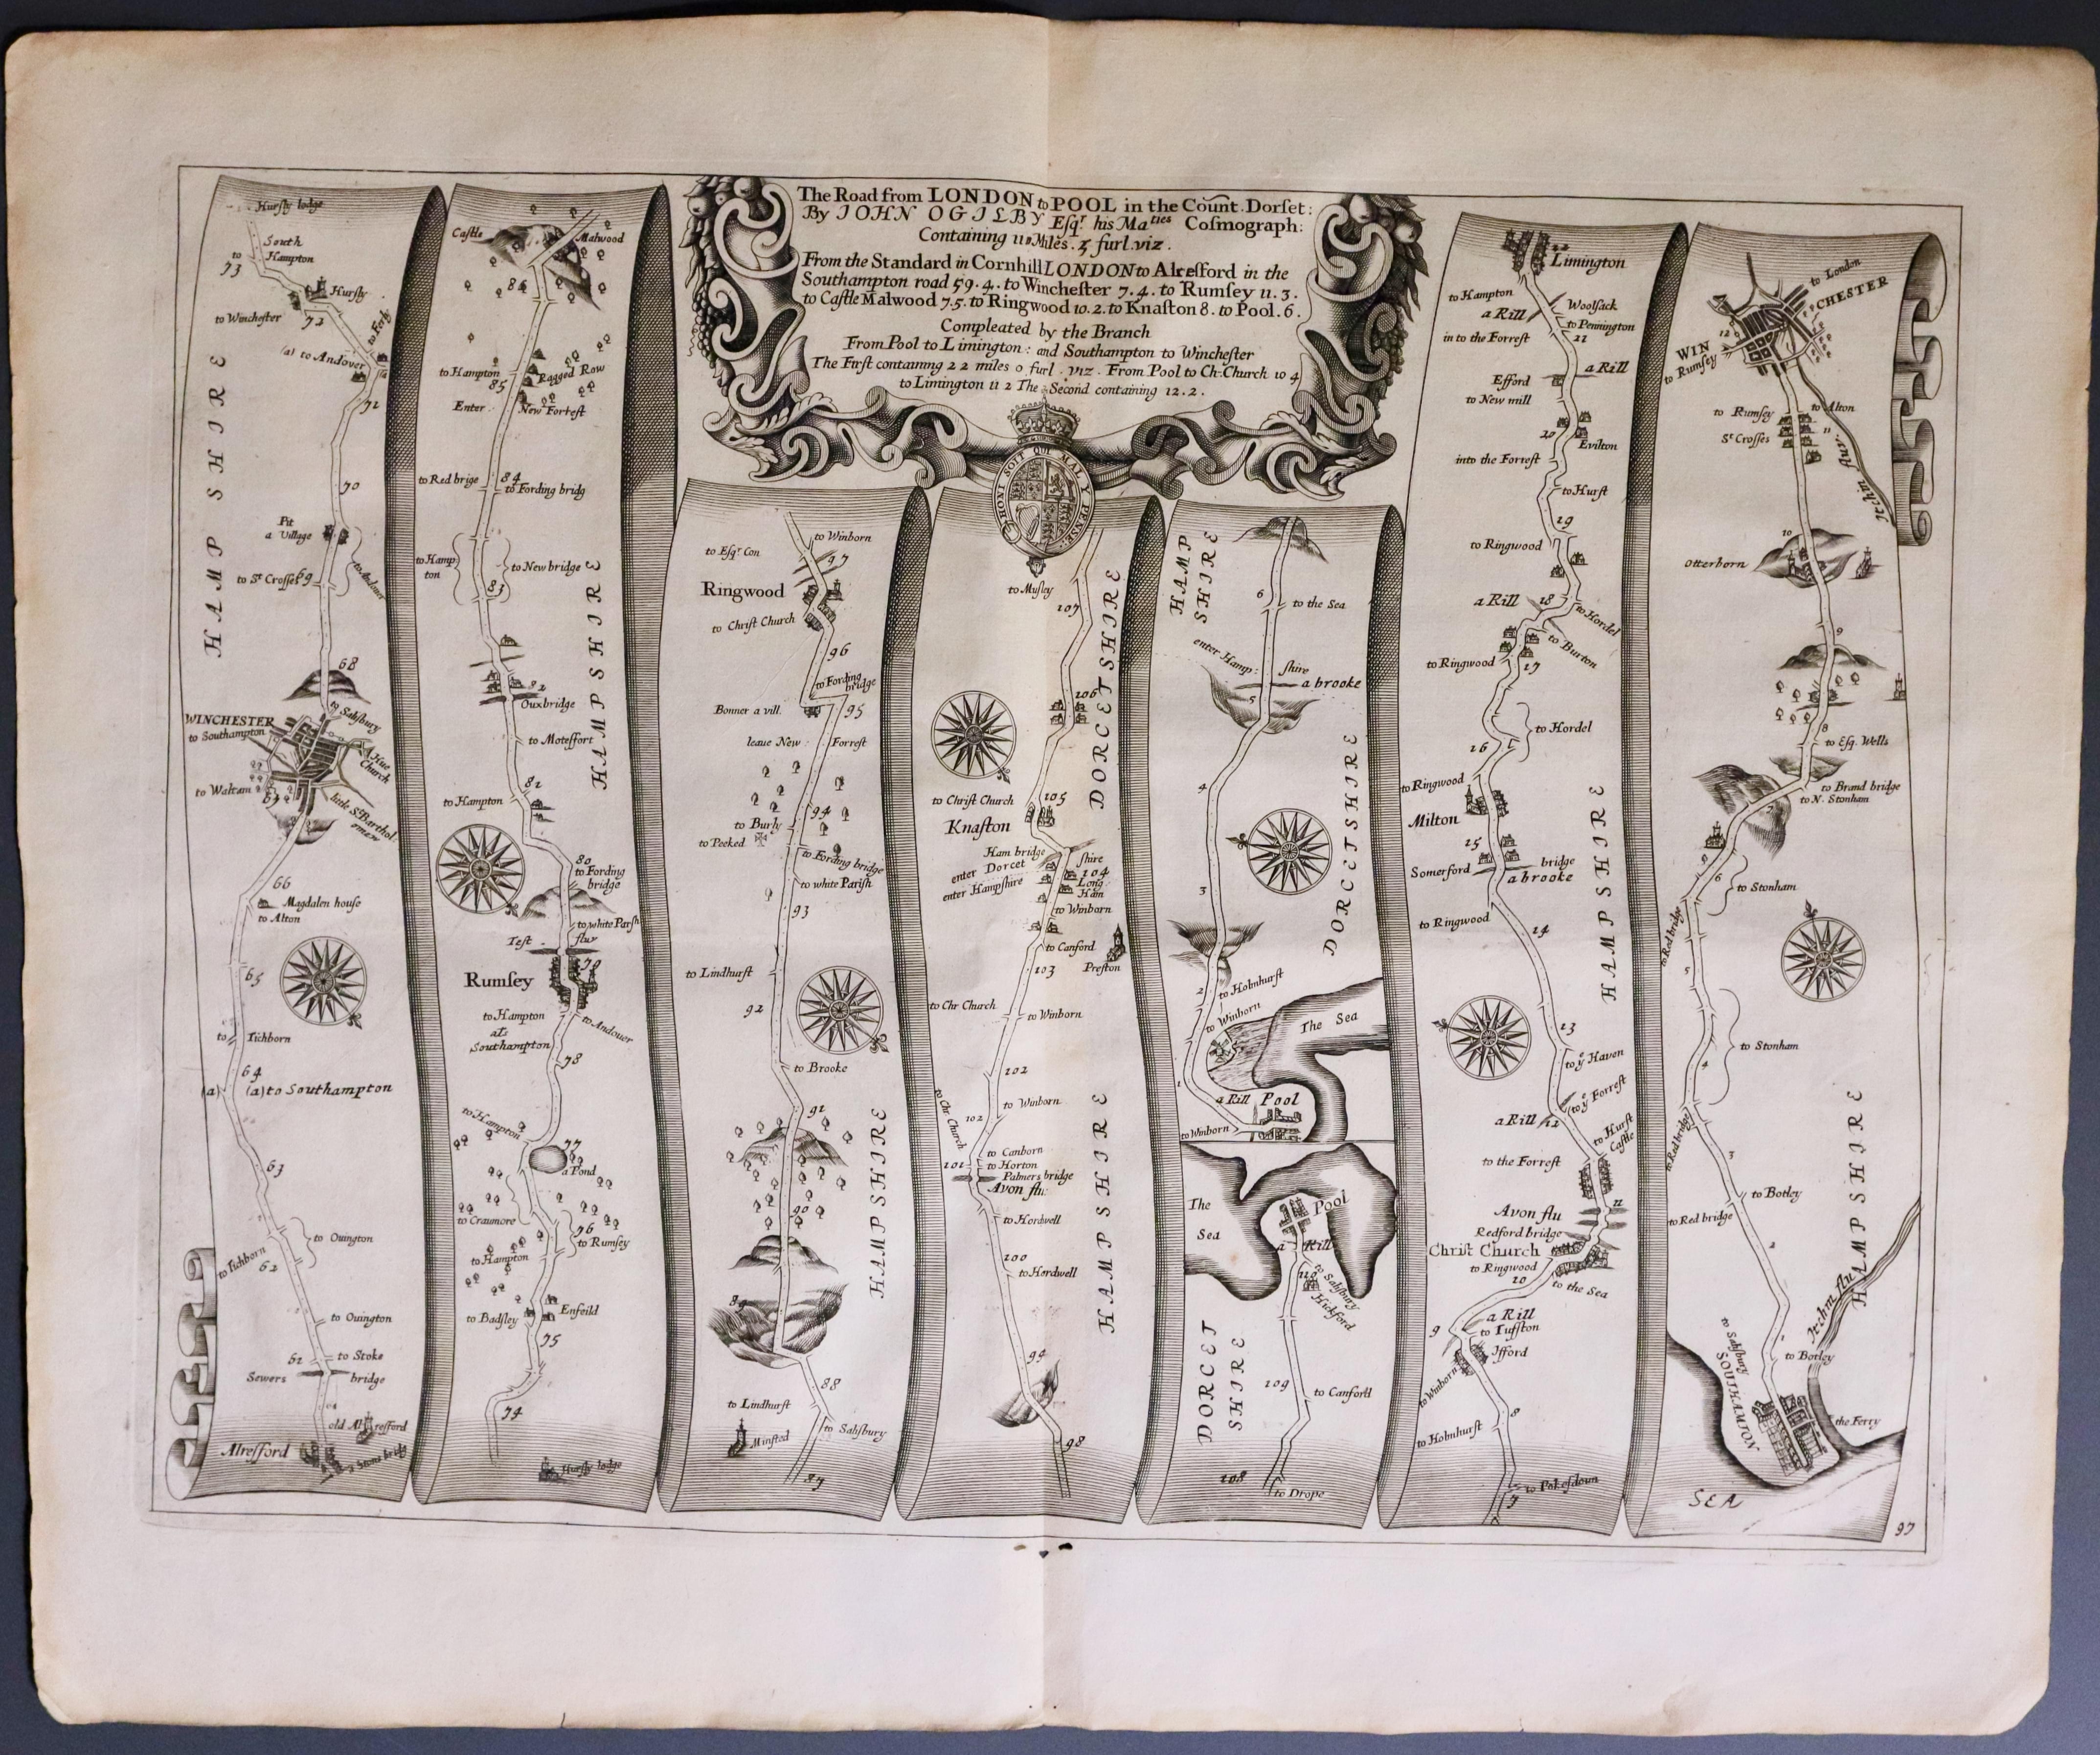 The Road from LONDON to POOL in the Count. Dorſet:
By JOHN OGILBY Eſqr. his Maties Coſmograph:
Containing 110 Miles. 5 furl. viz.
From the Standard in Cornhill LONDON to Alreſford in the
Southampton road 59.4. to Wincheſter 7.4. to Rumſey 11.3.
to Caſtle Malwood 7.5. to Ringwood 10.2. to Knaſton 8. to Pool. 6.
Compleated by the Branch
From Pool to Limington: and Southampton to Wincheſter
The Firſt containing 22 miles 0 furl. viz. From Pool to Ch: Church 10 4
to Limington 11 2 The Second containing 12.2.
HONI SOIT QUI MAL Y PENSE
Hurſly lodge
South
to Hampton
73
Hurſly
to Wincheſter
72
to Ferly
(a) to Andover
71
HAMP SHIRE
70
Pit
a Village
to St Croſſes 69
to Andover
68
to Salisbury
WINCHESTER
to Southampton
A Hue
Church
to Waltam
67
little St Barthol:
omew
66
Magdalen house
to Alton
65
to Tichborn
64
(a) (a) to Southampton
63
to Ovington
to Tichborn
62
to Ovington
61 to Stoke
Sewers bridge
old Alreſford
Alreſford
a Stone bridg
Caſtle Malwood
86
to Hampton
85
Ragged Row
Enter New Forreſt
84
to Red brige to Fording bridg
to Hamp
ton
to New bridge
83
HAMP SHIRE
82
Ouxbridge
to Moteſfort
81
to Hampton
80
to Fording
bridge
to white Pariſh
Teſt fluv
79
Rumſey
to Hampton
als
Southampton
to Andover
78
to Hampton
77
a Pond
to Craumore
76
to Rumſey
to Hampton
to Badſley
Enfeild
75
74
Hurſly lodge
to Winborn
to Eſqr Con
97
Ringwood
to Chriſt Church
96
to Fording
bridge
Bonner a vill.
95
leave New Forreſt
94
to Burly
to Peeked
to Fording bridge
to white Pariſh
93
to Lindhurſt
92
to Brooke
91
90
HAMP SHIRE
89
88
to Lindhurſt
Minſted
to Saliſbury
87
to Muſley
107
DORCETSHIRE
106
105
to Chriſt Church
Knaſton
Ham bridge
enter Dorcet shire
enter Hampſhire
104
Long
Ham
to Winborn
to Canford
103
Preſton
to Chr Church
to Winborn
102
to Winborn
102
to Chr Church
to Canborn
101 to Horton
Palmers bridge
Avon flu:
to Hordwell
100
to Hordwell
HAMP SHIRE
99
98
HAMP
SHIRE
6
to the Sea
enter Hamp: ſhire
a brooke
5
4
DORCETSHIRE
3
2
to Holmhurſt
to Winborn
The Sea
1
a Rill Pool
to Winborn
The
Sea
Pool
a Rill
110
to Salisbury
Hickford
DORCET
SHIRE
109
to Canford
108
to Drope
22
Limington
to Hampton
a Rill
Woolſack
to Pennington
in to the Forreſt
21
a Rill
Efford
to New mill
20
Evilton
into the Forreſt
to Hurſt
19
to Ringwood
a Rill 18
to Hordel
to Burton
to Ringwood
17
to Hordel
16
to Ringwood
Milton
15
bridge
Somerford a brooke
to Ringwood
14
HAMP SHIRE
13
to ye Haven
to ye Forreſt
a Rill 12
to Hurſt
Caſtle
to the Forreſt
11
Avon flu
Redford bridge
Chriſt Church
to Ringwood
10
to the Sea
a Rill
9
to Tuffton
Ifford
to Winborn
8
to Holmhurſt
to Pokeſdown
7
to London
WINCHESTER
12
to Rumſey
to Rumſey to Alton
St Croſſes
11
Itchin fluv.
10
Otterborn
9
8
to Eſq. Wells
to Brand bridge
to N. Stonham
7
6
to Stonham
to Red bridge
5
to Stonham
4
to Red bridge
3
to Botley
to Red bridge
2
HAMP SHIRE
Itchin flu
1
to Botley
to Saliſbury
SOUTHAMTON
the Ferry
SEA
97